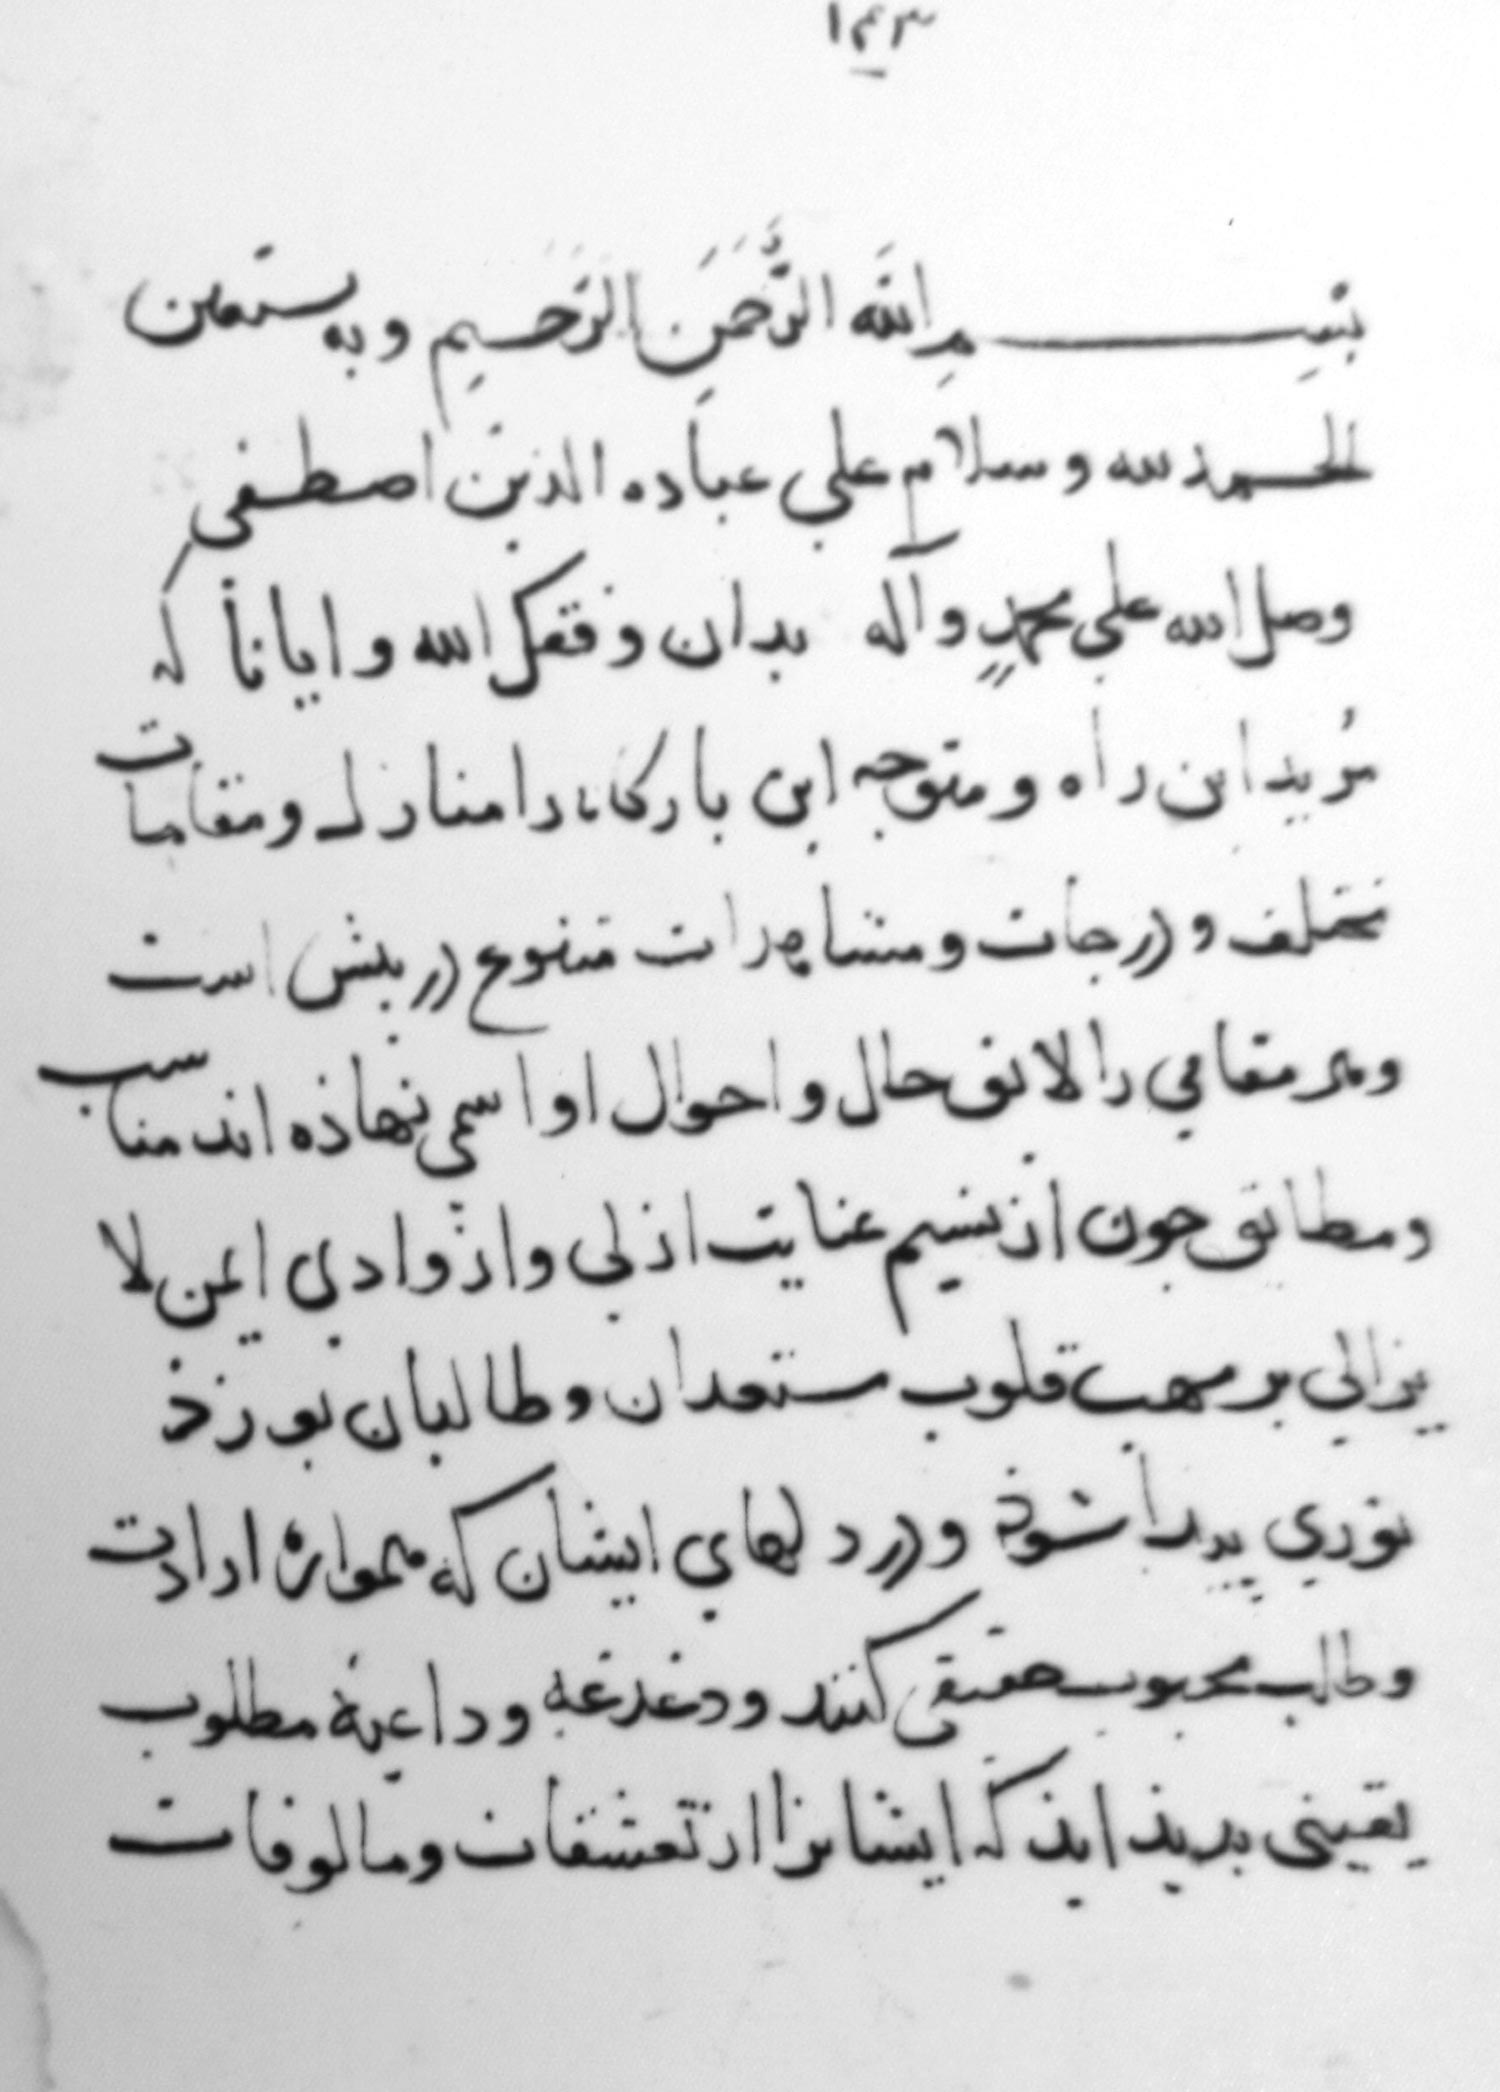 ۱۴۳
بسم الله الرَّحمَن الرَّحیم وبه نستعین
الحمد لله وسلام علی عباده الذین اصطفی
وصل الله علی محمدٍ وآله بدان وفقک الله وایانا که
مُرید این راه ومتوجه این بارکاه را منازل ومقامات
مختلف ودرجات ومشاهدات متنوع در پیش است
وهر مقامی را لائق حال واحوال او اسمی نهاذه اند مناسب
ومطابق جون از نسیم عنایت ازلی واز وادی ایمن لا
یزالی بر مهب قلوب مستعدان وطالبان بوزذ
نوری پیدا شوذ ودر دلهای ایشان که همواره ارادت
وطلب محبوب حقیقی کنند ودغدغه وداعیهٔ مطلوب
یقینی بدیذ ایذ که ایشانرا از تعشقات ومالوفات